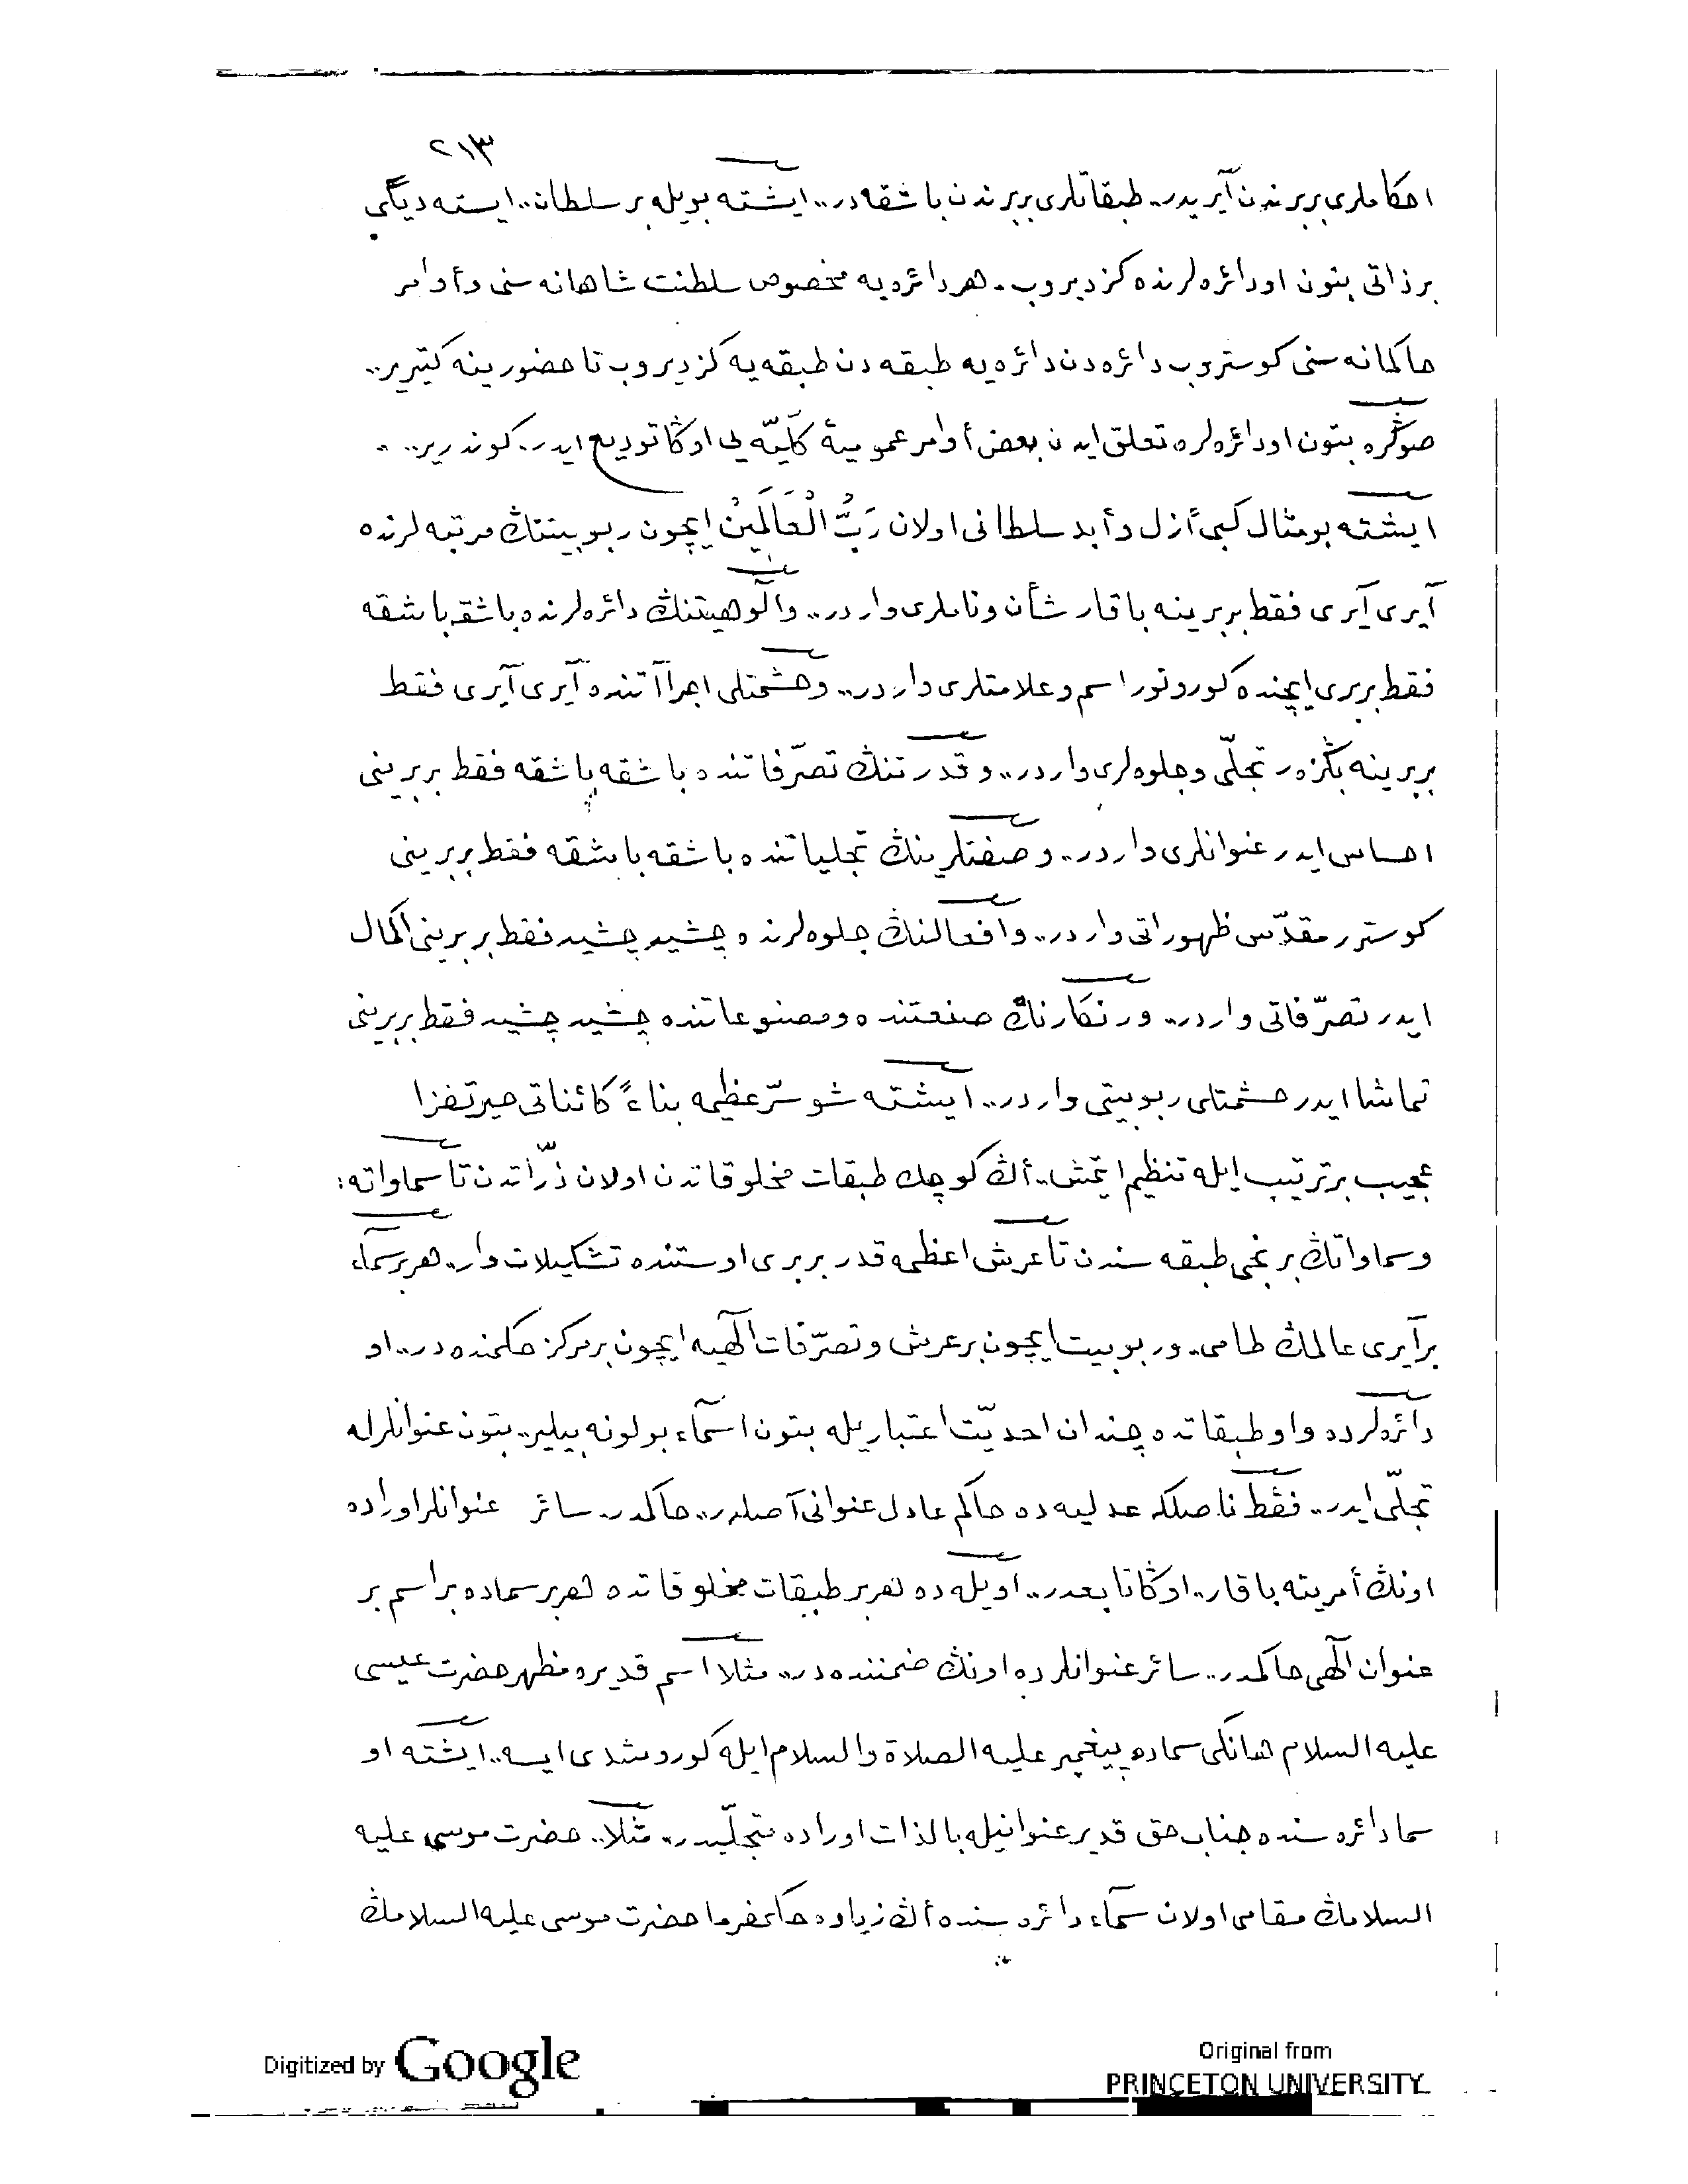 ٢١٣
احكاملرى بربرندن آيريدر.. طبقاتلرى بربرندن باشقه‌در.. ايشته بويله بر سلطان.. ايسته ديگى
بر ذاتى بتون او دائره‌لرنده كزديروب. هر دائره‌يه مخصوص سلطنت شاهانه سنى وأوامر
حاكمانه سنى كوستروب دائره دن دائره يه طبقه دن طبقه يه كزديروب تا حضورينه كتيرير..
صوڭره بتون او دائره لره تعلق ايدن بعض أوامر عموميۀ كلّيّه يى اوڭا توديع ايدر. كوندرير..
ايشته بو مثال كبى أزل وأبد سلطانى اولان رَبُّ الْعَالَمَينْ ايچون ربوبيتنڭ مرتبه لرنده
آيرى آيرى فقط بربرينه باقار شأن ونامارى واردر.. والوهيتنڭ دائره لرنده باشقه باشقه
فقط بربرى ايچنده كورونور اسم وعلامتلرى واردر.. وحشمتلى اجراآتنده آيرى آيرى فقط
بربرينه بڭزر تجلّى وجلوه لرى واردر.. وقدرتنڭ تصرّفاتنده باشقه باشقه فقط بربرينى
احساس ايدر عنوانلرى واردر.. وصفتلرينڭ تجلياتنده باشقه باشقه فقط بربرينى
كوسترر مقدّس ظهوراتى واردر.. وافعالنڭ جلوه لرنده چشيد چشيد فقط بربرينى اكمال
ايدر تصرّفاتى واردر.. ورنكارنك صنعتنده ومصنوعاتنده چشيد چشيد فقط بربرينى
تماشا ايدر حشمتلى ربوبيتى واردر.. ايشته شو سرّ عظيمه بناءً كائناتى حيرتفزا
عجيب بر ترتيب ايله تنظيم ايتمش.. أڭ كوچك طبقات مخلوقاتدن اولان ذرّاتدن تا سماواته:
وسماواتڭ برنجى طبقه سندن تا عرش اعظمه قدر بربرى اوستنده تشكيلات وار. هر بر سمآء
بر آيرى عالمڭ طامى. وربوبيت ايچون بر عرش وتصرّفات الٓهيه ايچون بر مركز حكمنده در.. او
دائره لرده واو طبقاتده چندان احديّت اعتباريله بتون اسمآء بولونه بيلير.. بتون عنوانلرله
تجلّى ايدر.. فقط ناصلكه عدليه ده حاكم عادل عنوانى اصلدر.. حاكمدر. سائر عنوانلر اوراده
اونڭ أمرينه باقار.. اوڭا تابعدر.. اويله ده هر بر طبقات مخلوقاتده هر بر سماده بر اسم بر
عنوان الٓهى حاكمدر.. سائر عنوانلرده اونڭ ضمننده در.. مثلا اسم قديره مظهر حضرت عيسى
عليه السلام هانكى سماده پيغمبر عليه الصلاة والسلام ايله كوروشدى ايسه.. ايشته او
سما دائره سنده جناب حق قدير عنوانيله بالذات اوراده متجلّيدر.. مثلا.. حضرت موسى عليه
السلامڭ مقامى اولان سمآء دائره سنده أڭ زياده حاكمفرما حضرت موسى عليه السلامڭ
Digitized by Google
Original from
PRINCETON UNIVERSITY